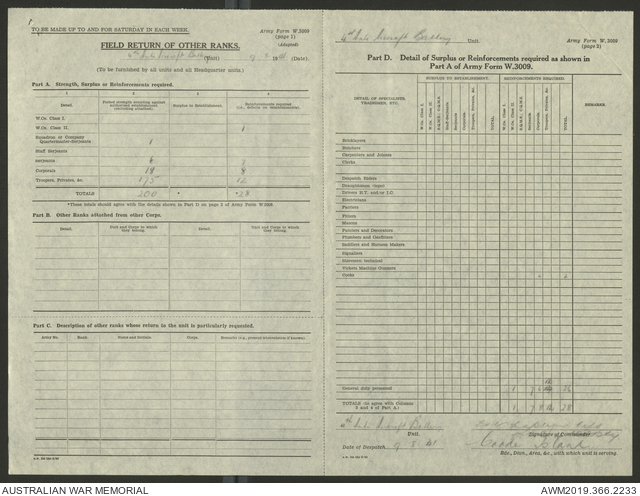 TO BE MADE UP TO AND FOR SATURDAY IN EACH WEEK.
Army Form W.3009
(page 1)
(Adapted)
FIELD RETURN OF OTHER RANKS.
(Unit)
(Date)
(To be furnished by all units and all Headquarter units.)
Part A. Strength, Surplus or Reinforcements required.
1 2 3 4
Detail.
Surplus to Establishment.
Reinforcements required
W.Os. Class I.
W.Os. Class II. 1
Squadron or Company
Quartermaster-Serjeants 1
Staff Serjeants
Serjeants 6 7
Corporals 18 8
Troopers, Privates, &c. 175 12
TOTALS 200 * *28
*These totals should agree with the details shown in Part D on page 2 of Army Form W.3009
Part B. Other Ranks attached from other Corps.
Detail. Unit and Corps to which they belong. Detail. Unit and Corps to which they belong.
Part C. Description of other ranks whose return to the unit is particularly requested.
Army No. Rank. Name and Initials. Corps. Remarks
4th Anti Aircraft Battery Unit.
Army Form W.3009
(page 2)
Part D. Detail of Surplus or Reinforcements required as shown in
Part A of Army Form W.3009.
SURPLUS TO ESTABLISHMENT. REINFORCEMENTS REQUIRED.
DETAIL OF SPECIALISTS, TRADESMEN, ETC.
W.Os. Class I.
W.Os. Class II.
Staff-Serjeants
Serjeants
Corporals
Troopers, Privates, &c.
TOTAL
REMARKS
Bricklayers
Butchers
Carpenters and Joiners
Clerks
Despatch Riders
Draughtsmen (topo)
Drivers H.T. and/or I.C.
Electricians
Farriers
Fitters
Masons
Painters and Decorators
Plumbers and Gasfitters
Saddlers and Harness Makers
Signallers
Storemen technical
Vickers Machine Gunners
Cooks 2
General duty personnel 26
TOTALS (to agree with Columns
3 and 4 of Part A.) 1 7 8 12 28
4th Anti Aircraft Battery
Unit.
Signature of Commander.
Date of Despatch
Goode Island
Bde., Divn., Area, &c., with which unit is serving.
AUSTRALIAN WAR MEMORIAL
AWM2019.366.2233